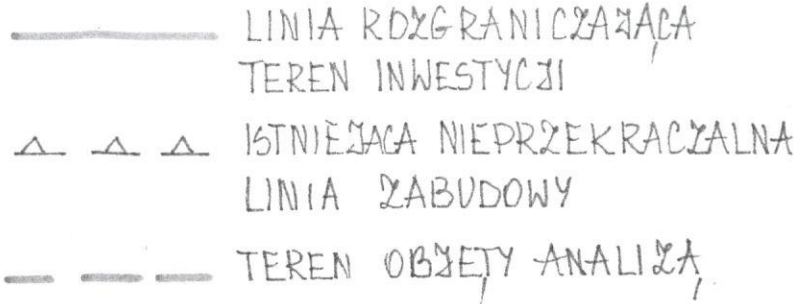 LINIA ROZGRANICZAJĄCA
TEREN INWESTYCJI
ISTNIEJĄCA NIEPRZEKRACZALNA
LINIA ZABUDOWY
TEREN OBJĘTY ANALIZĄ